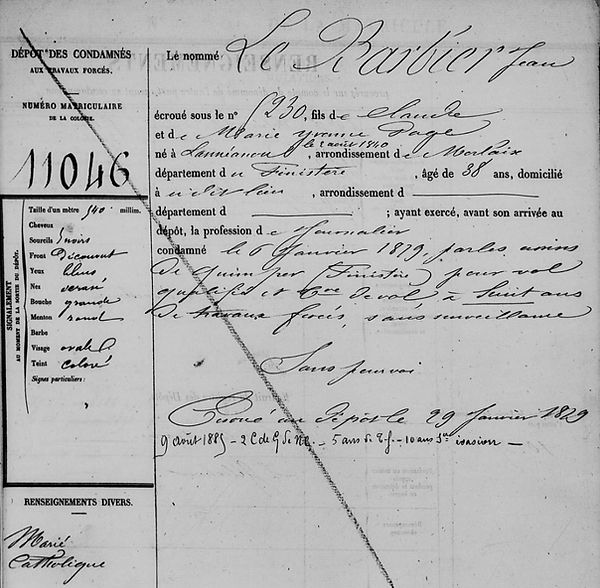 DÉPÔT DES CONDAMNÉS
AUX TRAVAUX FORCÉS.
NUMÉRO MATRICULAIRE
DE LA COLONIE.
11046
SIGNALEMENT
AU MOMENT DE LA SORTIE DU DÉPÔT.
Taille d'un mètre 540 millim.
Cheveux
Sourcils } noirs
Front Découvert
Yeux bleus
Nez
Bouche grande
Menton rond
Barbe
Visage ovale
Teint coloré
Signes particuliers:
RENSEIGNEMENTS DIVERS.
Marié
Catholique
Le nommé Le Barbier Jean
écroué sous le n° 5230, fils de Claude
et de Marie Yvonne Page
le 2 août 1840
né à Lannéanou, arrondissement de Morlaix
département du Finistère, âgé de 38 ans, domicilié
à dit lieu, arrondissement d
département d ; ayant exercé, avant son arrivée au
dépôt, la profession de Journalier
condamné le 6 Janvier 1879, par les assises
de Quimper (Finistère) pour vol
qualifié et de vol à huit ans
de travaux forcés, sans surveillance
Sans pourvoi
Écroué au Dépôt le 29 Janvier 1879
9 août 1885 - 2 C de G de NC - 5 ans de T.f. - 10 ans évasion -